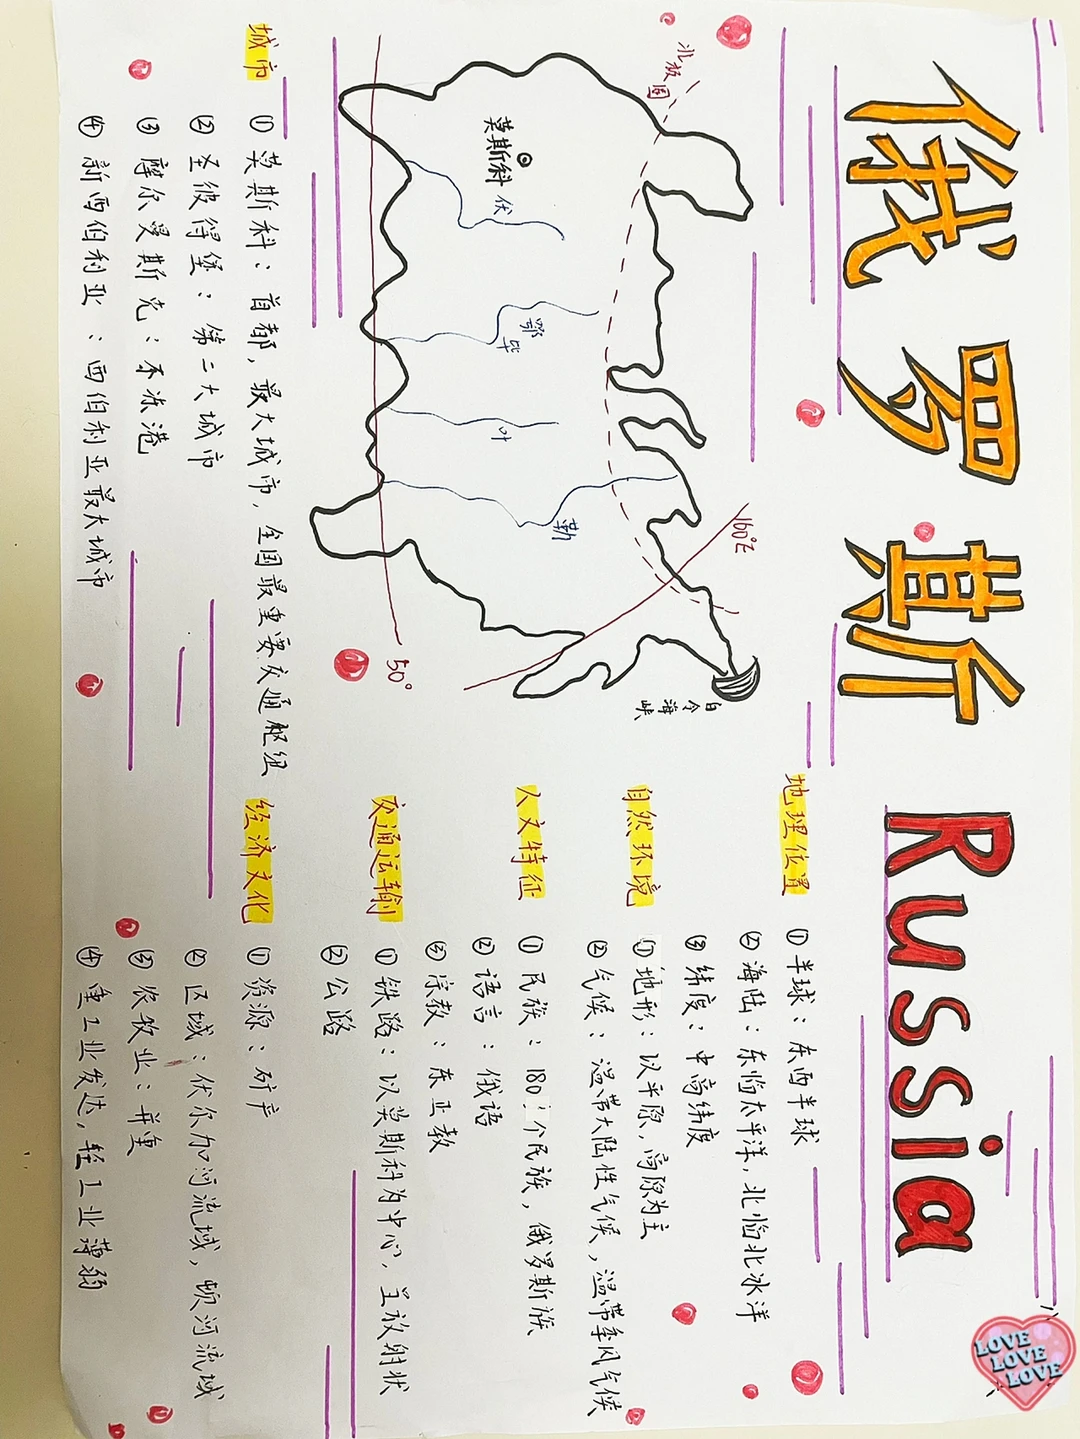 俄罗斯 Russia
北极圈
莫斯科
伏
鄂毕
叶
勒
160°E
50°
白令海峡
地理位置
① 半球：东西半球
② 海陆：东临太平洋，北临北冰洋
③ 纬度：中高纬度
自然环境
① 地形：以平原，高原为主
② 气候：温带大陆性气候，温带季风气候
人文特征
① 民族：180多个民族，俄罗斯族
② 语言：俄语
③ 宗教：东正教
交通运输
① 铁路：以莫斯科为中心，呈放射状
② 公路
城市
① 莫斯科：首都，最大城市，全国最重要交通枢纽
② 圣彼得堡：第二大城市
③ 摩尔曼斯克：不冻港
④ 新西伯利亚：西伯利亚最大城市
经济文化
① 资源：矿产
② 区域：伏尔加河流域，顿河流域
③ 农牧业：并重
④ 重工业发达，轻工业薄弱
LOVE
LOVE
LOVE